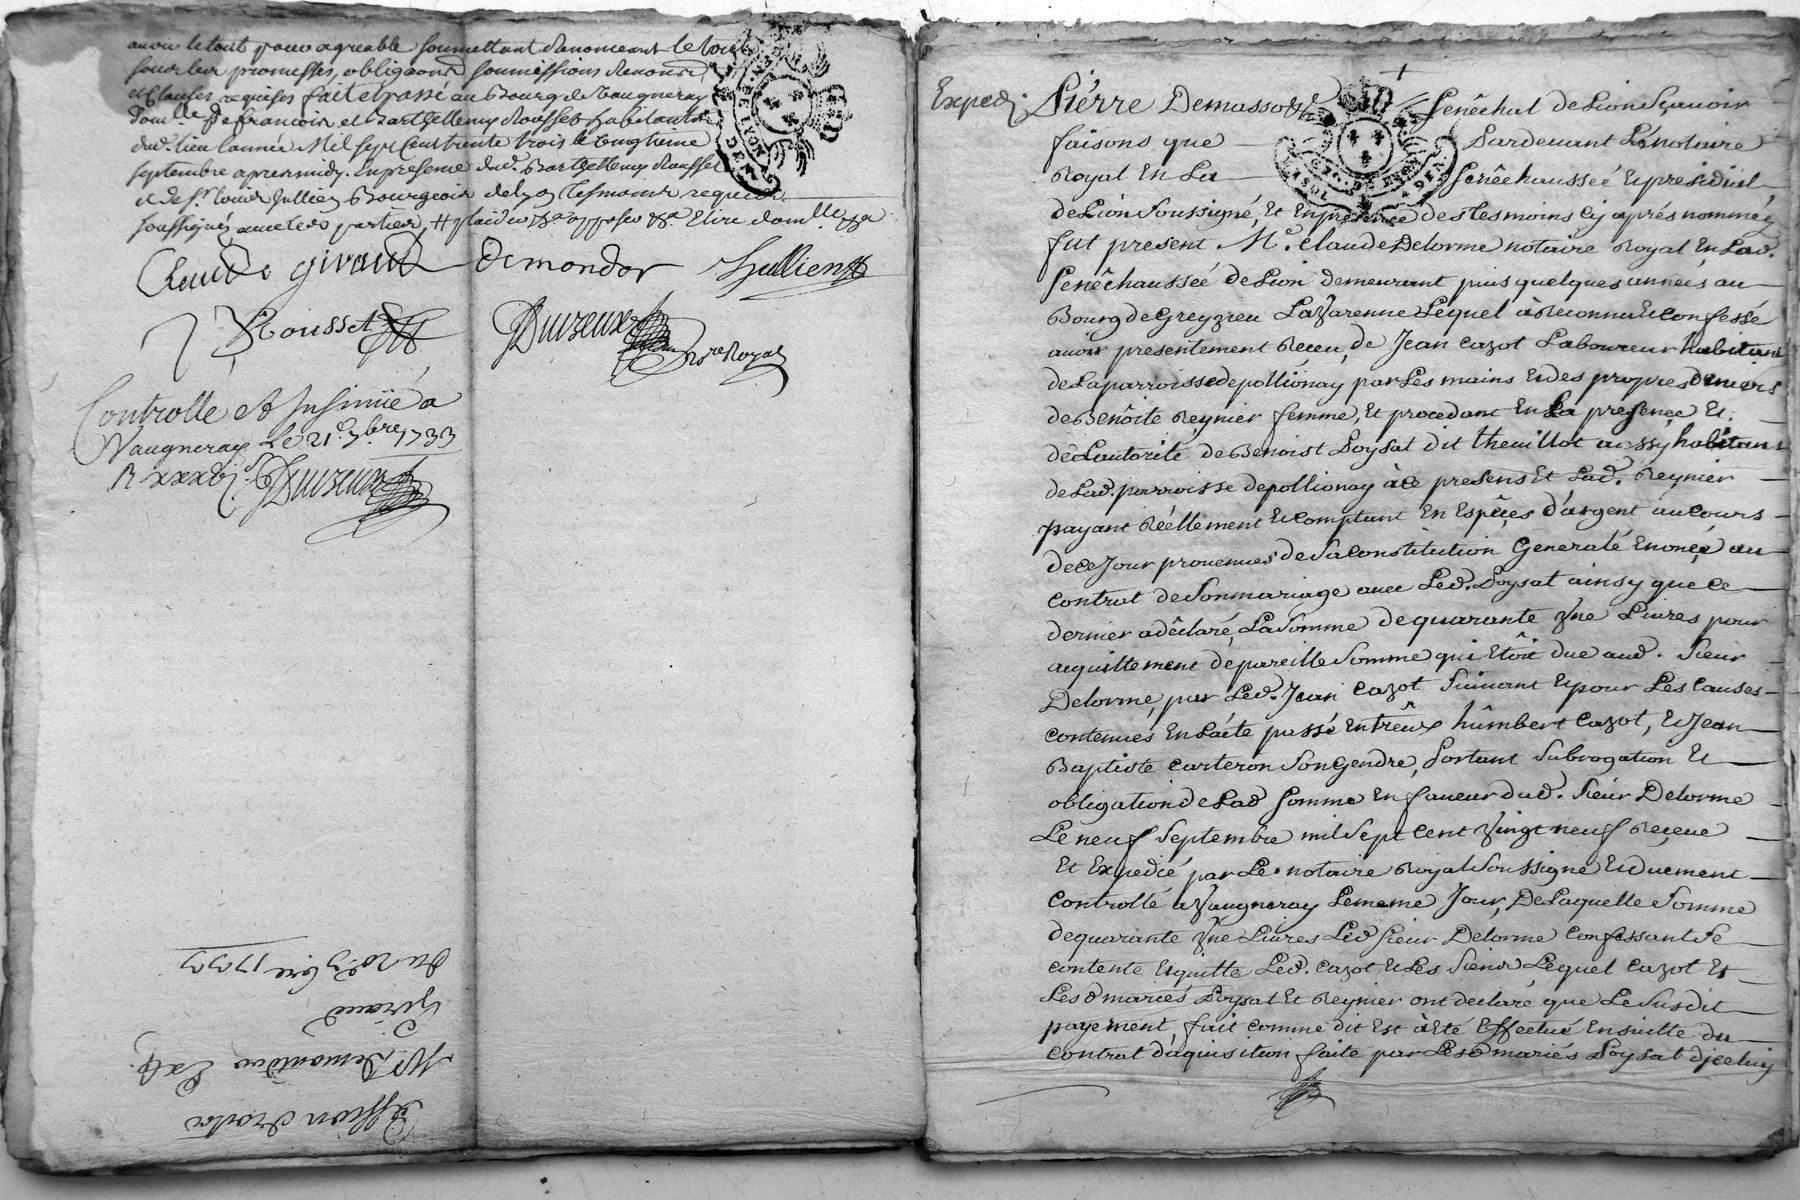 avoir le tout pour agreable soumettant Renonceant le tout
sous leur promesses, obligaons soumissions Renons
et Clauses requises fait et passé au Bourg de Vaugneray
Domlle De francois et Barthellemy Rousset habitants
dud. lieu L'année Mil sept Cent trente trois le vingtieme
septembre apresmidy. En presence dud. Barthellemy Rousset
et de Sr Louis Jullien Bourgeois de Lyon tesmoins requis
soussignés avec les parties, # plaider &a opposer &a Elire domlle &a
Claude givaud Demondor Jullien
Rousset Duvzeux
Nore Royal
Controllé et Insinüé a
Vaugneray Le 21e 7bre 1733
R xxxvj s. 6 Duvzeux
Expedi.
Piérre Demasso Senêchal de Lion Sçavoir
faisons que Pardevant Lé notaire
Royal En La Senêchausseé Et presidial
de Lion Soussigné, Et En presence des tesmoins Cy aprés nommés
fut present Me. claude Delorme notaire Royal En Lad.
Senêchausseé de Lion demeurant puis quelques années au
Bourg de Greyzieu LaVarenne Lequel à Reconnu Et confessé
avoir presentement Receu, de Jean cazot Laboureur habitant
de La parroisse de pollionay par Les mains Et des propres deniers
de Benôite Reynier femme, Et procedant En La presence Et
de L'autorité de Benoist Loysat dit theuillot aussy habitant
de Lad. parroisse de pollionay à ce presens Et Lad. Reynier
payant Réellement Et comptant En Espêces d'argent au cours
de ce Jour provenues de Sa constitution Generalé Enoncé au
contrat de Son mariage avec Led. Loysat ainsy que ce
dernier a dêclaré, La Somme de quarante Vne Livres pour
acquittement de pareille Somme qui Etôit due aud. Sieur
Delorme, par Led. Jean cazot Suivant Et pour Les causes
contenues En L'acte passé Entrêux hûmbert Cazot, Et Jean
Baptiste carteron Son Gendre, Portant Subrogation Et
obligation de Lad Somme En faveur dud. Sieur Delorme
Le neuf Septembre mil Sept cent Vingt neuf Reçeue
Et Expedié par Le notaire Royal Soussigné Et duement
controllé a Vaugneray Le meme Jour, De Laquelle Somme
de quarante Vne Livres Led Sieur Delorme confessant Se
contente Et quitte Led. cazot Et Les Siens Lequel cazot Et
Lesd mariés Loysat Et Reynier ont declaré que Le Susdit
payement, fait comme dit Est à Eté Effectué En Suitte du
contrat d'aquisition faite par Lesd mariés Loysat d'jceluy
Cession droits
Mr. Demondor Exp.
Givaud
Du 20e 7bre 1733